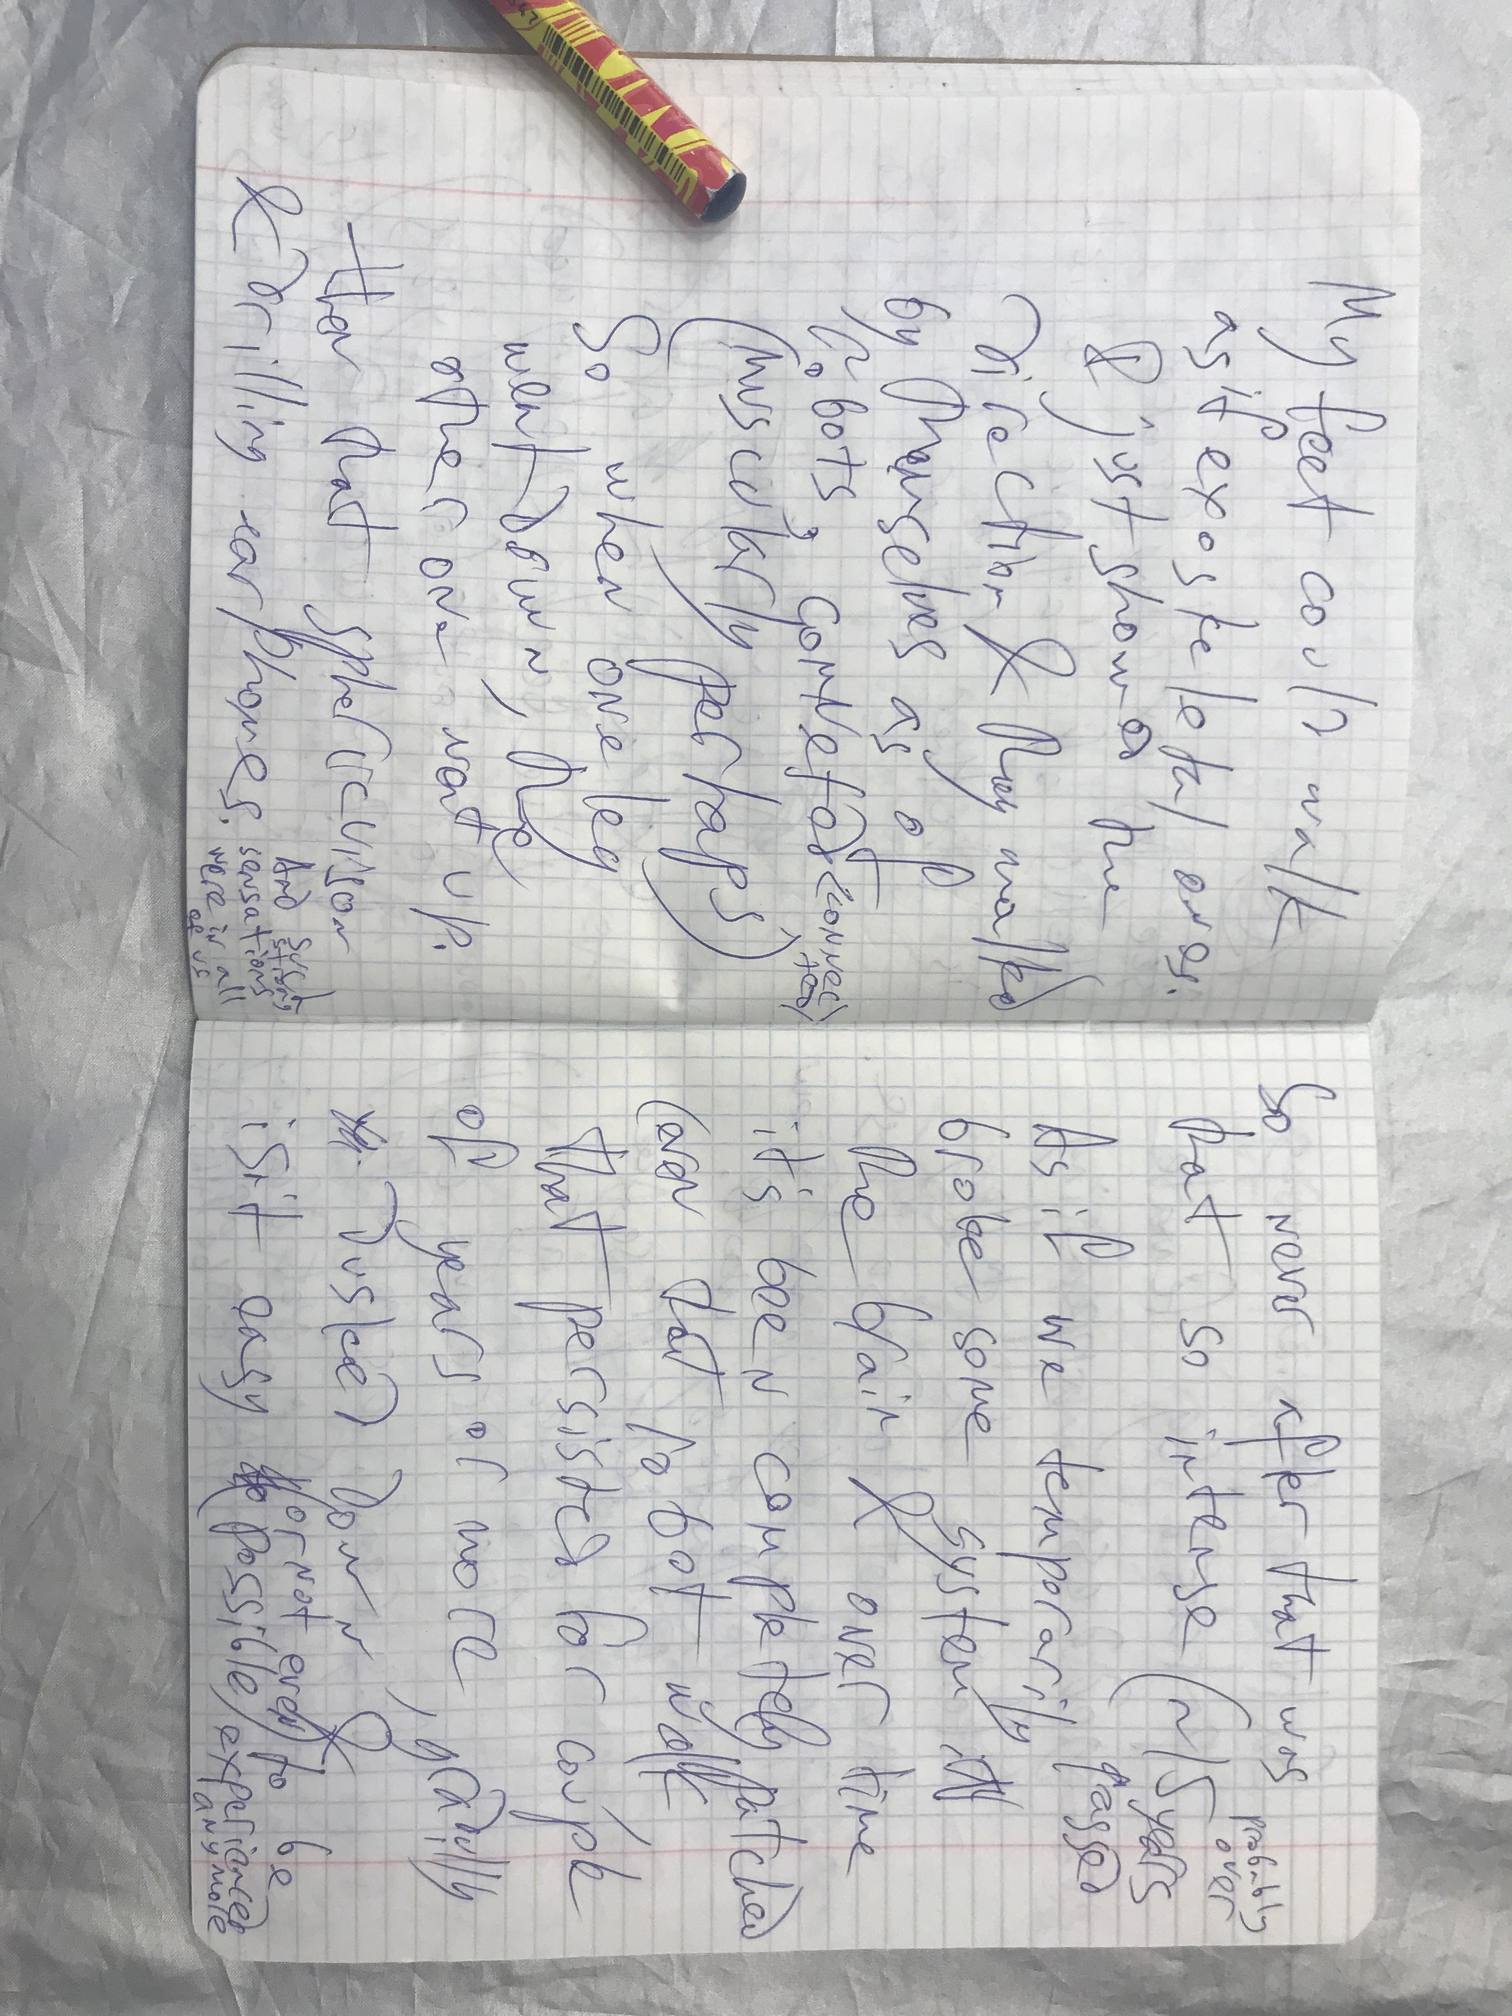 My feet could walk
as if exoskeletal ones.
I just showed the
direction & they walked
by themselves as of
robots, connected <connec
ted>
(muscularly perhaps)
So when one leg
went down, the
other one went up.
then that spheric vision
& drilling earphones. And such
strong
sensations
were in all
of us
So never after that was
that so intense (~15 years
probably
over
passed
As if we temporarily
broke some system
the brain & over time
it's been completely patched
(even that robot walk
that persisted for couple
of years or more, gradually
dusked down &
is it easy
or not even to be
possible, experienced
any more